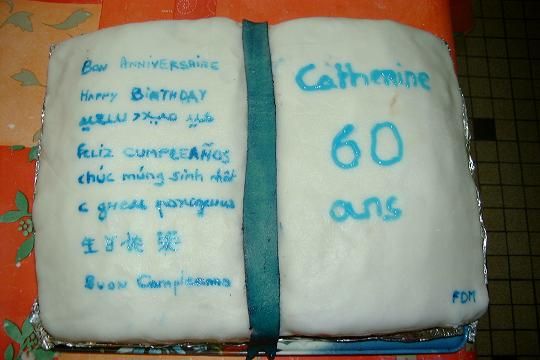 Bon Anniversaire
Happy Birthday
عيد ميلاد سعيد
feliz cumpleaños
chúc múng sinh nhât
c gнem рождения
生日快樂
Buon Compleanno
Catherine
60
ans
FDM